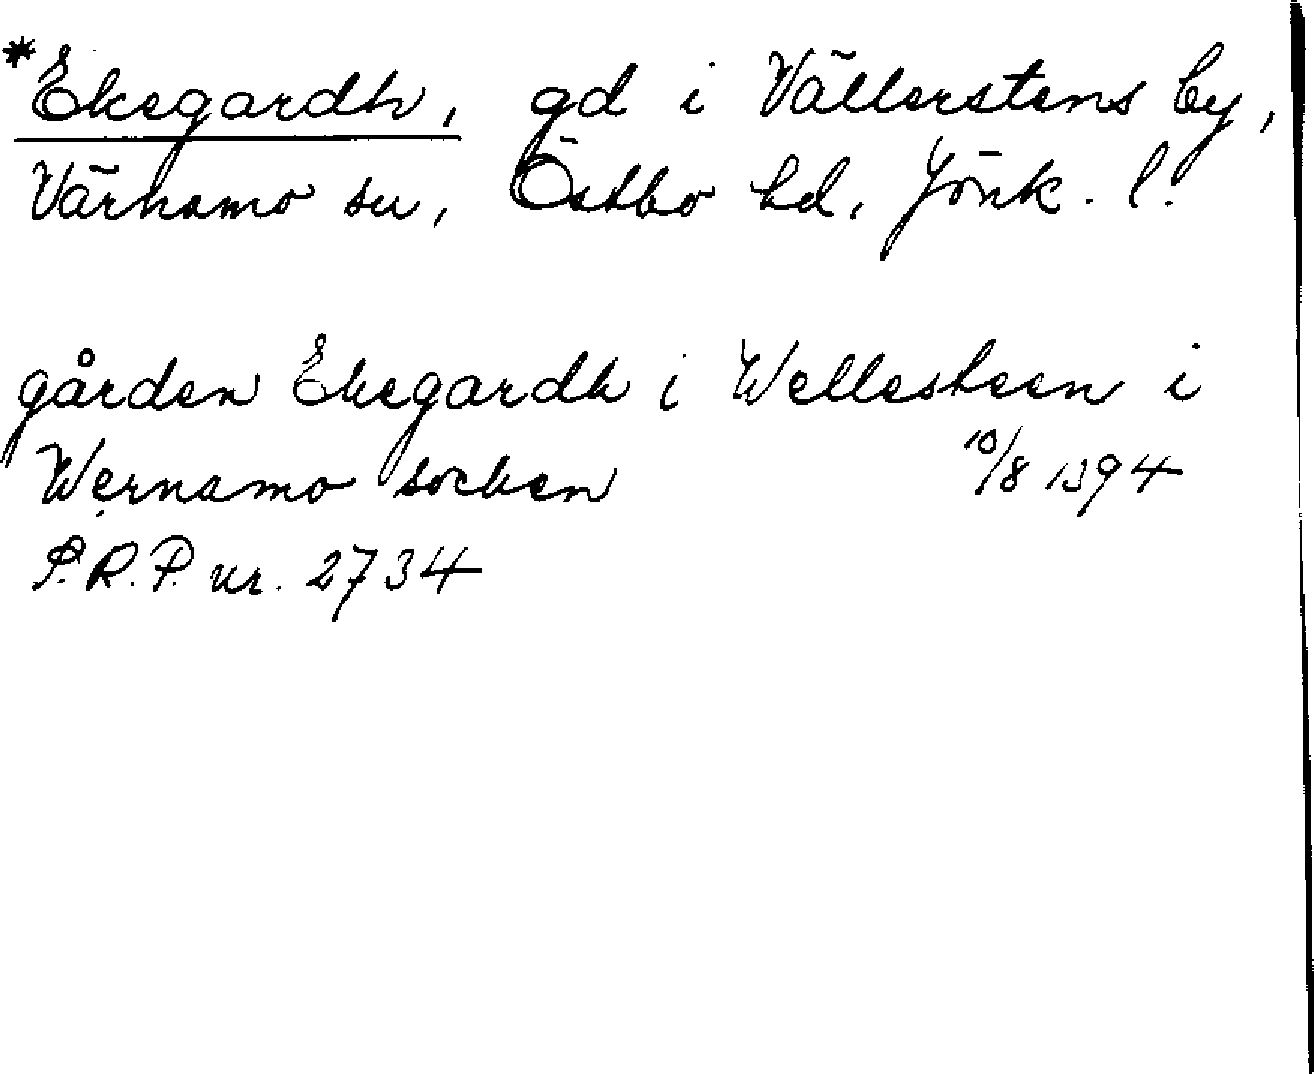 *Ekegardh, gd i Vällerstens by,
Värnamo sn, Östbo hd, Jönk. l.
gården Ekegardh i Wellesteen i
Wernamo socken 10/8 1394
S.R.P. nr. 2734